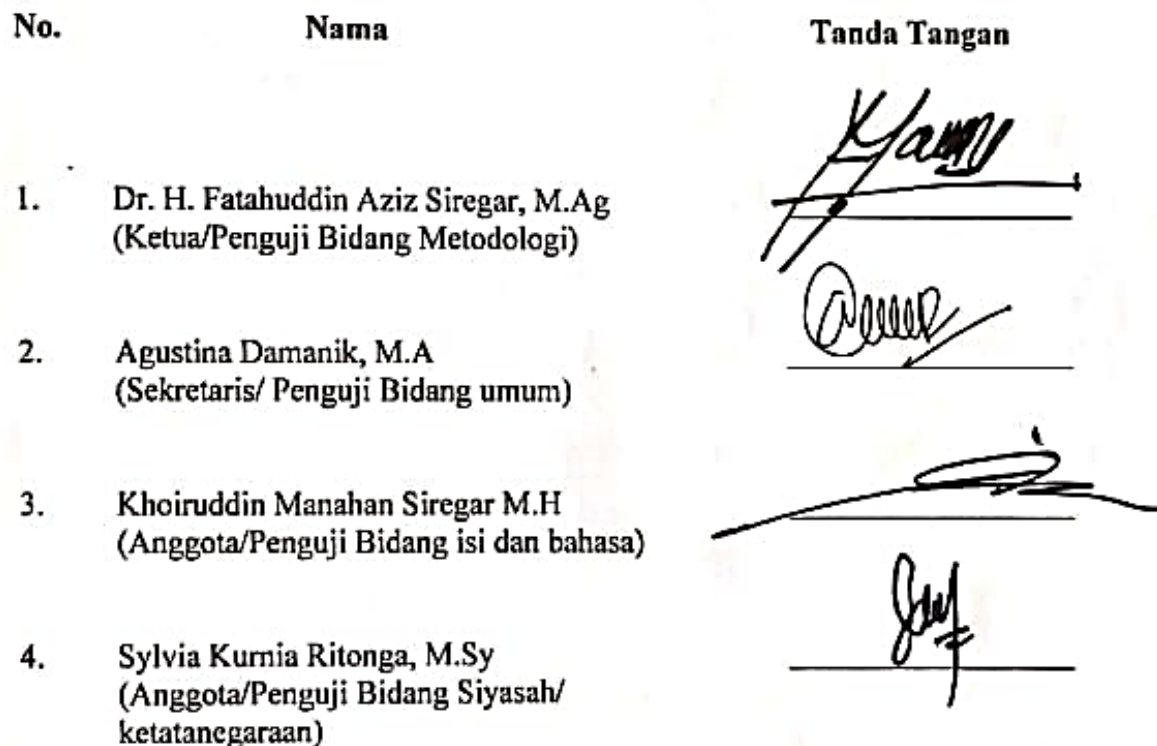 No. Nama Tanda Tangan
1. Dr. H. Fatahuddin Aziz Siregar, M.Ag
(Ketua/Penguji Bidang Metodologi)
2. Agustina Damanik, M.A
(Sekretaris/ Penguji Bidang umum)
3. Khoiruddin Manahan Siregar M.H
(Anggota/Penguji Bidang isi dan bahasa)
4. Sylvia Kurnia Ritonga, M.Sy
(Anggota/Penguji Bidang Siyasah/
ketatanegaraan)